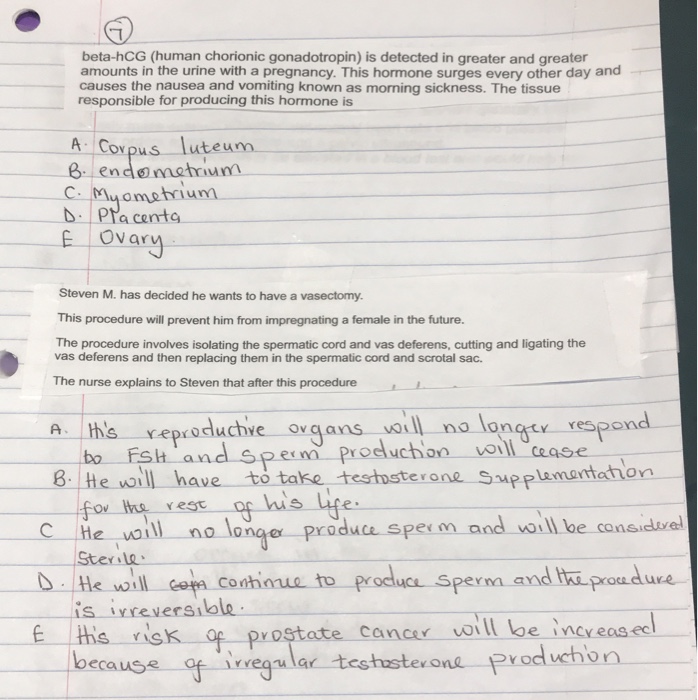 7
beta-hCG (human chorionic gonadotropin) is detected in greater and greater
amounts in the urine with a pregnancy. This hormone surges every other day and
causes the nausea and vomiting known as morning sickness. The tissue
responsible for producing this hormone is
A. Corpus luteum
B. endometrium
C. Myometrium
D. Placenta
E Ovary
Steven M. has decided he wants to have a vasectomy.
This procedure will prevent him from impregnating a female in the future.
The procedure involves isolating the spermatic cord and vas deferens, cutting and ligating the
vas deferens and then replacing them in the spermatic cord and scrotal sac.
The nurse explains to Steven that after this procedure
A. His reproductive organs will no longer respond
to FSH and sperm production will cease
B. He will have to take testosterone supplementation
for the rest of his life.
C He will no longer produce sperm and will be considered
Sterile.
D. He will continue to produce sperm and the procedure
is irreversible.
E His risk of prostate cancer will be increased
because of irregular testosterone production